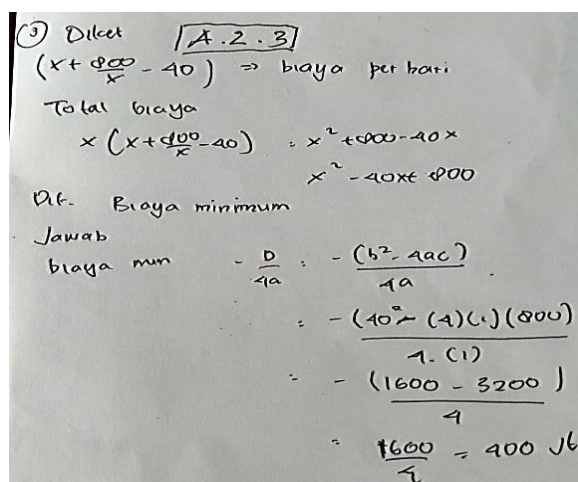 ③ Diket [A.2.3]
(x + 800/x - 40) ⇒ biaya per hari
Total biaya
x (x + 800/x - 40) = x² + 800 - 40x
x² - 40x + 800
Dit. Biaya minimum
Jawab
biaya min - D/4a = - (b² - 4ac)/4a
= - (40² - (4)(1)(800)/4.(1)
= - (1600 - 3200)/4
= 1600/4 = 400 Jt